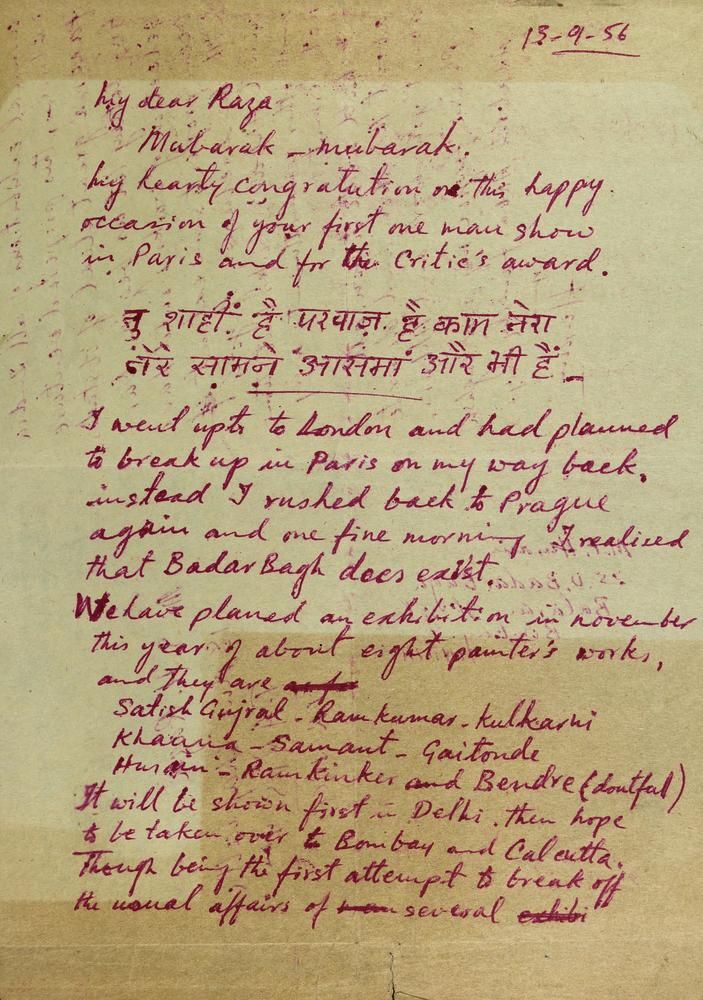 13-9-56
My dear Raza
Mubarak - mubarak.
My hearty congratution on this happy.
occasion of your first one man show
in Paris and for the Critic's award.
तु शाहीं है परवाज़ है काम तेरा
तेरे सामने आसमां और भी हैं -
I went upto to London and had planned
to break up in Paris on my way back,
instead I rushed back to Prague
again and one fine morning I realised
that Badar Bagh does exist.
We have planed an exhibition in november
this year of about eight painter's works,
and they are
Satish Gujral - Ramkumar - Kulkarni
Khanna - Samant - Gaitonde
Husain - Ramkinker and Bendre (doutful)
It will be shown first in Delhi. then hope
to be taken over to Bombay and Calcutta.
Though being the first attempt to break off
the usual affairs of several exhibi